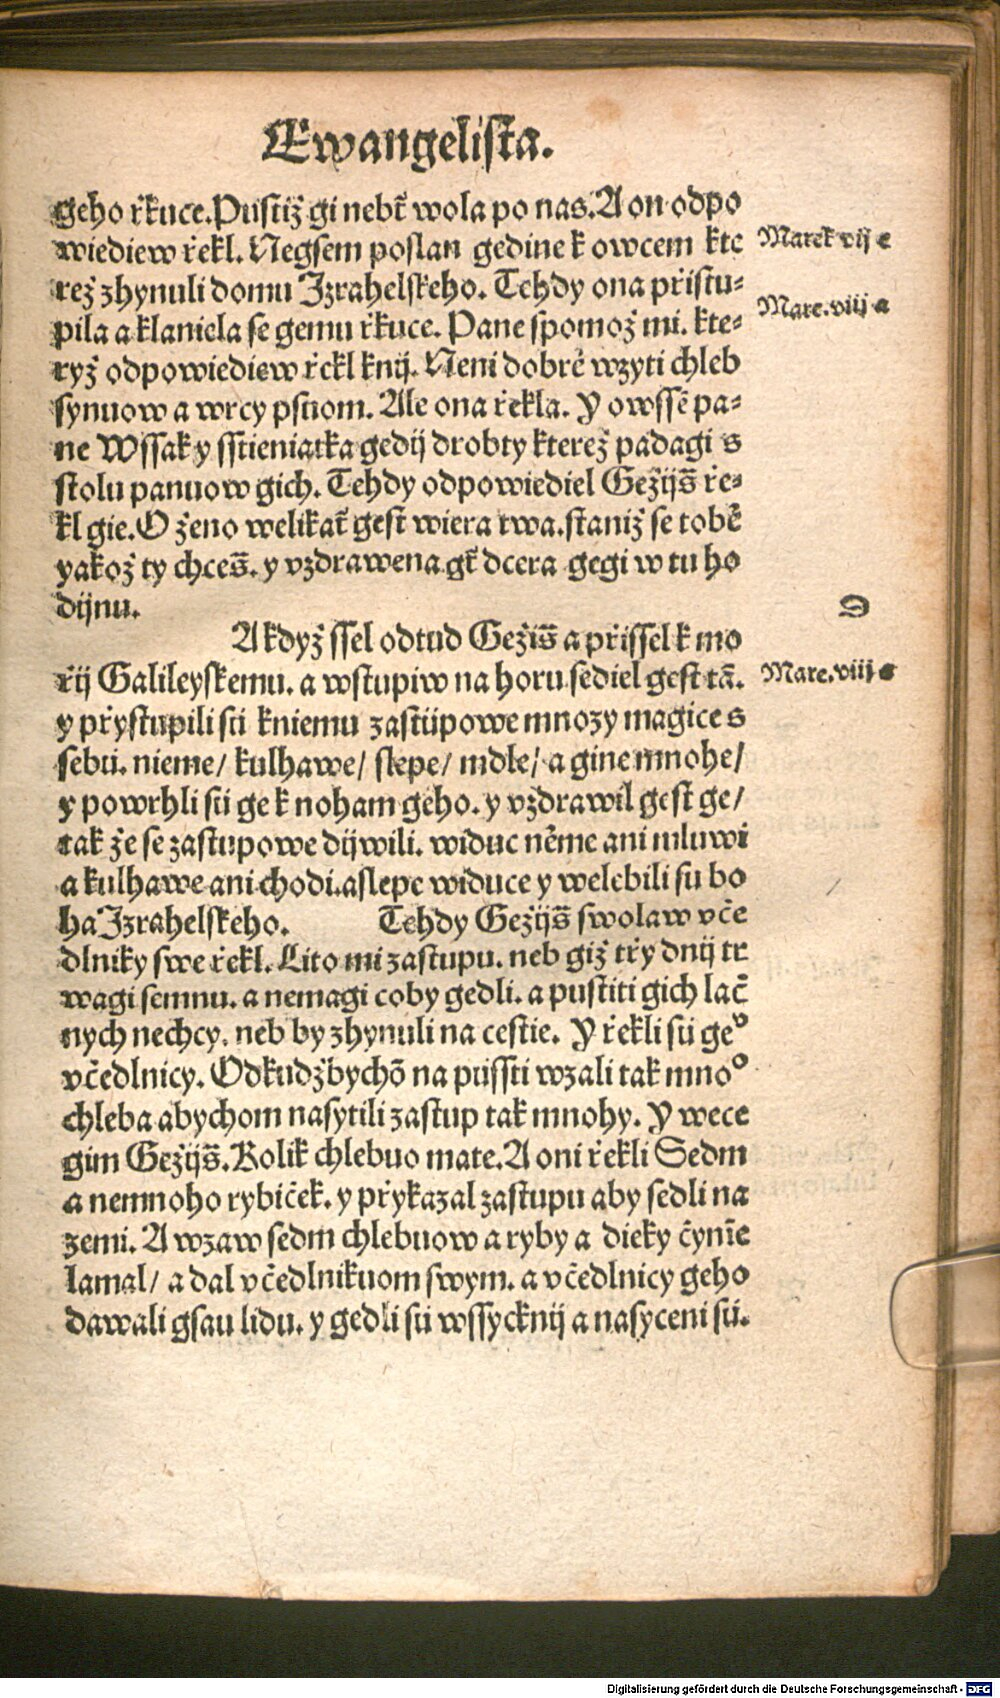 Ewangelista.
geho řkuce. Pustiž gi nebt̃ wola po nas. A on odpo
wiediew řekl. Negsem poslan gedine k owcem kte
Marek vij c
rež zhynuli domu Izrahelskeho. Tehdy ona přistu-
Mare. viij a
pila a klaniela se gemu řkuce. Pane spomož mi. kte-
ryž odpowiediew řekl knij. Neni dobrẽ wzyti chleb
synuow a wrcy psuom. Ale ona řekla. Y owssẽ pa-
ne Wssak y sstieniatka gedij drobty kterež padagi s
stolu panuow gich. Tehdy odpowiediel Gežijs̃ ře-
kl gie. O ženo welikat̃ gest wiera twa. staniž se tobẽ
yakož ty chces̃. y vzdrawena gt̃ dcera gegi w tu ho
dijnu.
D
A když ssel odtud Gežis̃ a přissel k mo
řij Galileyskemu. a wstupiw na horu sediel gest tã.
Mare. viij a
y přystupili sú kniemu zastúpowe mnozy magice s
sebú. nieme/ kulhawe/ slepe/ mdle/ a gine mnohe/
y powrhli sú ge k noham geho. y vzdrawil gest ge/
tak že se zastupowe dijwili. widuc nẽme ani mluwi
a kulhawe ani chodi. a slepe widuce y welebili su bo
ha Izrahelskeho. Tehdy Gežijs̃ swolaw vče
dlniky swe řekl. Lito mi zastupu. neb giž třy dnij tr
wagi semnu. a nemagi coby gedli. a pustiti gich lač
nych nechcy. neb by zhynuli na cestie. Y řekli sú geͦ
včedlnicy. Odkudžbychõ na pússti wzali tak mnoͦ
chleba abychom nasytili zastup tak mnohy. Y wece
gim Gežijs̃. Kolik chlebuo mate. A oni řekli Sedm
a nemnoho rybiček. y přykazal zastupu aby sedli na
zemi. A wzaw sedm chlebuow a ryby a dieky čynĩe
lamal/ a dal včedlnikuom swym. a včedlnicy geho
dawali gsau lidu. y gedli sú wssycknij a nasyceni sú.
Digitalisierung gefördert durch die Deutsche Forschungsgemeinschaft - DFG